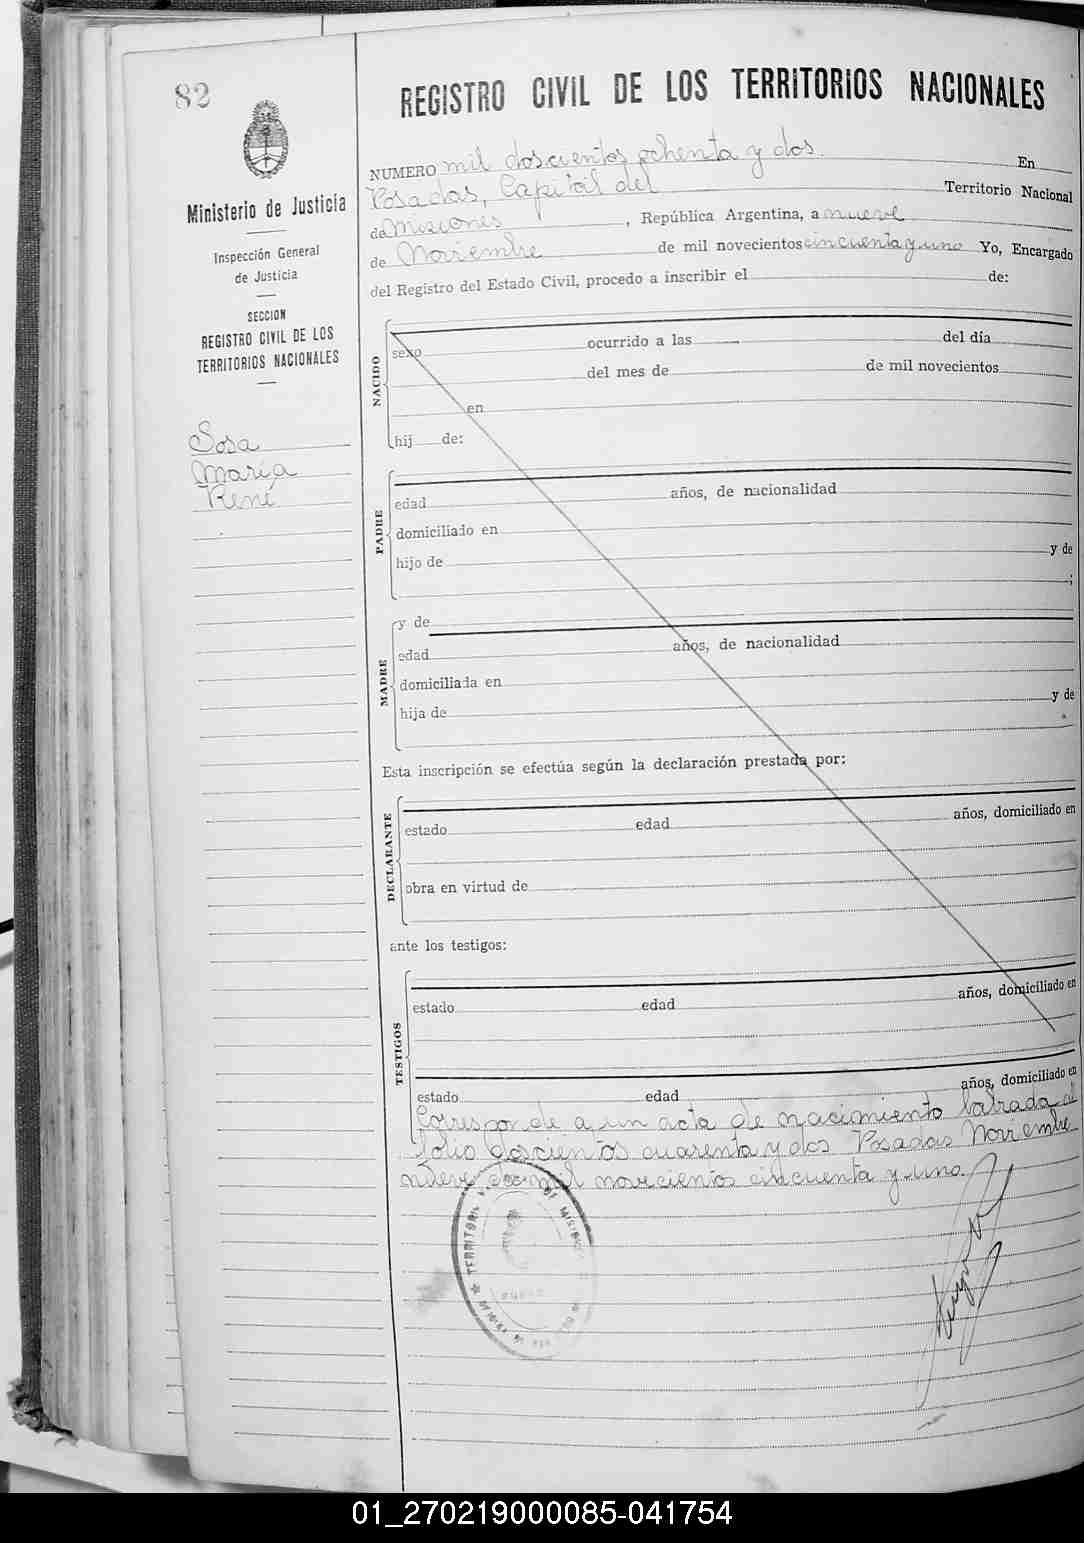 82
REGISTRO CIVIL DE LOS TERRITORIOS NACIONALES
Ministerio de Justicia
Inspección General
de Justicia
SECCION
REGISTRO CIVIL DE LOS
TERRITORIOS NACIONALES
Sosa
María
René
NUMERO mil doscientos ochenta y dos En
Posadas, Capital del Territorio Nacional
de Misiones, República Argentina, a nueve
de Noviembre de mil novecientos cincuenta y uno Yo, Encargado
del Registro del Estado Civil, procedo a inscribir el de:
NACIDO
sexo ocurrido a las del día
del mes de de mil novecientos
en
hij de:
PADRE
edad años, de nacionalidad
domiciliado en
hijo de y de
;
MADRE
y de
edad años, de nacionalidad
domiciliada en
hija de y de
Esta inscripción se efectúa según la declaración prestada por:
DECLARANTE
estado edad años, domiciliado en
obra en virtud de
ante los testigos:
TESTIGOS
estado edad años, domiciliado en
estado edad años, domiciliado en
Corresponde a un acta de nacimiento labrada al
folio doscientos cuarenta y dos Posadas Noviembre
nueve de mil novecientos cincuenta y uno.
01_270219000085-041754